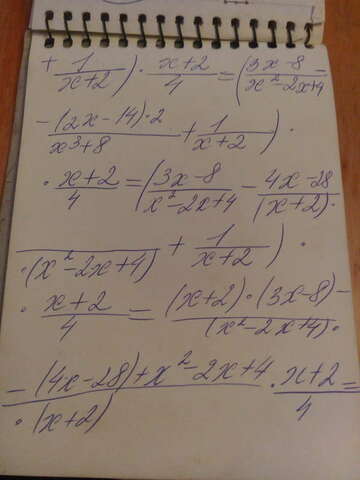 + 1/(x+2)) · (x+2)/4 = ((3x-8)/(x²-2x+4) -
- ((2x-14)·2)/(x³+8) + 1/(x+2)) ·
· (x+2)/4 = ((3x-8)/(x²-2x+4) - (4x-28)/((x+2)·
·(x²-2x+4)) + 1/(x+2)) ·
· (x+2)/4 = ((x+2)·(3x-8)-/(x²-2x+4)·
-(4x-28)+x²-2x+4/·(x+2) · (x+2)/4 =